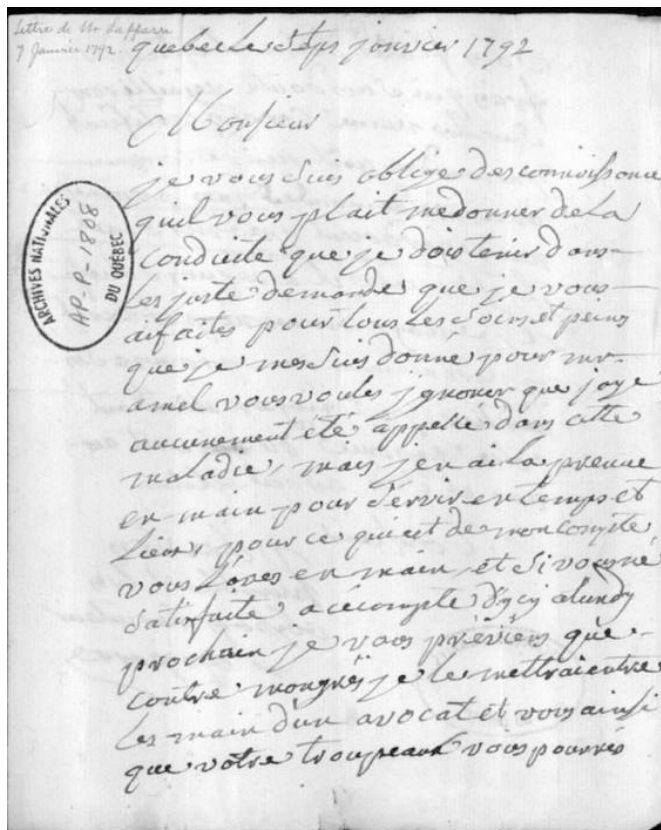 Lettre de Mr Lapperre
7 Janvier 1792.
quebec Le 7 janvier 1792
Monsieur
je vous suis obligé des connoissance
quil vous plait me donner de La
Conduite que je dois tenir dans
Les juste demande que je vous
ai faites pour tous Les soins et peins
que je me suis donné pour mr
amel vous voules jgnorer que jaye
aucunement été appellé dans cette
maladie, mais jen ai la preuve
en main pour servir en temps et
Lieux, pour ce qui est de mon compte
vous Lavés en main, et si vous né
satisfaite a ce compte d'ycy a Lundy
prochain je vous préviens que
contre mongrés je le mettrai entre
Les main d'un avocat et vous ainsi
que votre troupeaux vous pourrés
ARCHIVES NATIONALES
AP-P-1808
DU QUÉBEC